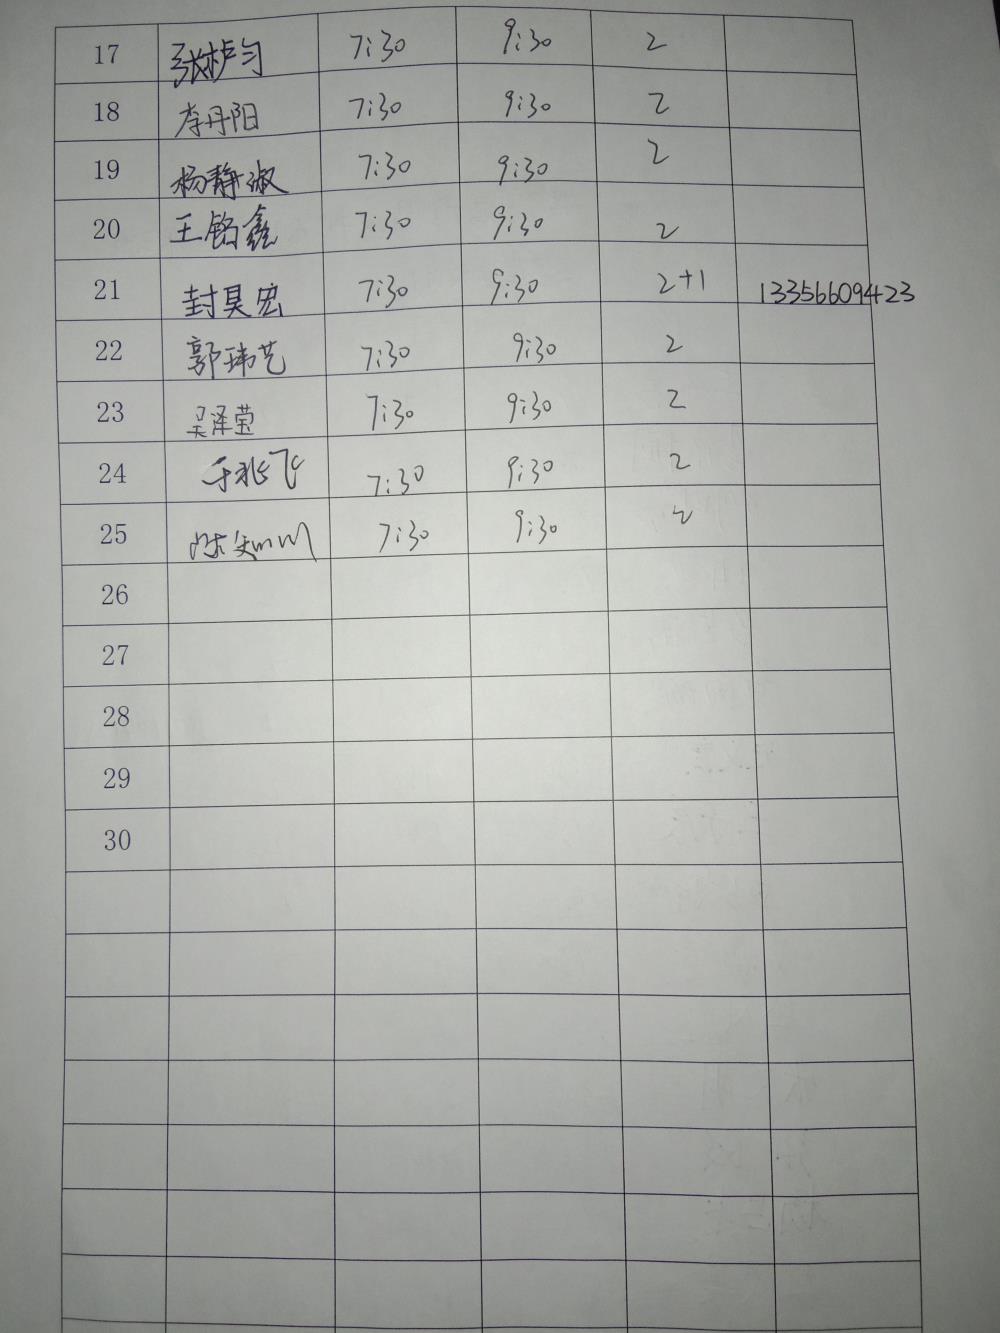 17 张栌匀 7:30 9:30 2
18 李丹阳 7:30 9:30 2
19 杨静淑 7:30 9:30 2
20 王铭鑫 7:30 9:30 2
21 封昊宏 7:30 9:30 2+1 13356609423
22 郭玮艺 7:30 9:30 2
23 吴泽莹 7:30 9:30 2
24 于兆飞 7:30 9:30 2
25 7:30 9:30 2
26
27
28
29
30